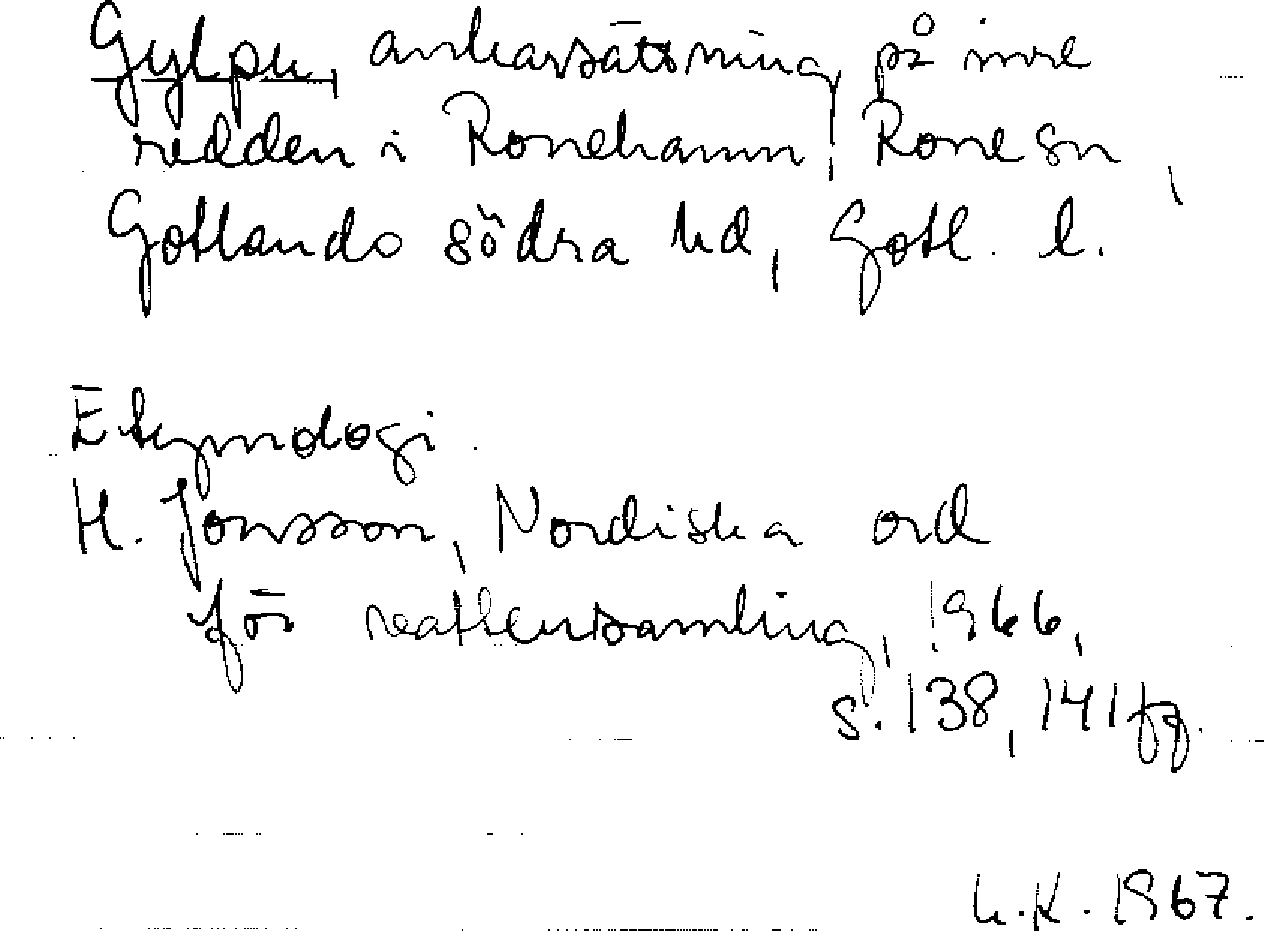 Gylpu, ankarsättning på inre
redden i Ronehamn, Rone sn,
Gotlands södra hd, Gotl. l.
Etymologi.
H. Jonsson, Nordiska ord
för vattensamling, 1966,
s. 138, 141 fg.
L.K. 1967.